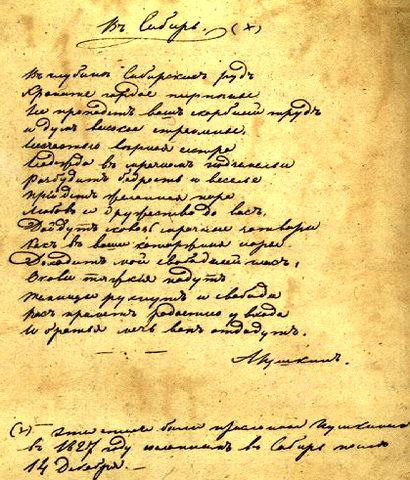 Въ Сибирь. (х)
Въ глубинѣ Сибирскихъ рудъ
Храните гордое терпѣнье
Не пропадетъ вашъ скорбный трудъ
и думъ высокое стремленье.
Несчастью вѣрная сестра
Надежда въ мрачномъ подземельи
Разбудитъ бодрость и веселье
прійдетъ желанная пора
Любовь и дружество до васъ,
Дойдутъ сквозь мрачные затворы
Какъ въ ваши каторжныя норы
Доходитъ мой свободный гласъ,
Оковы тяжкія падутъ
темницы рухнутъ и свобода
васъ приметъ радостно у входа
И братья мечь вамъ отдадутъ.
А Пушкинъ.
(х) – эти стихи были присланы Пушкинымъ
въ 1827 году въ Сибирь послѣ
14 Декабря. –